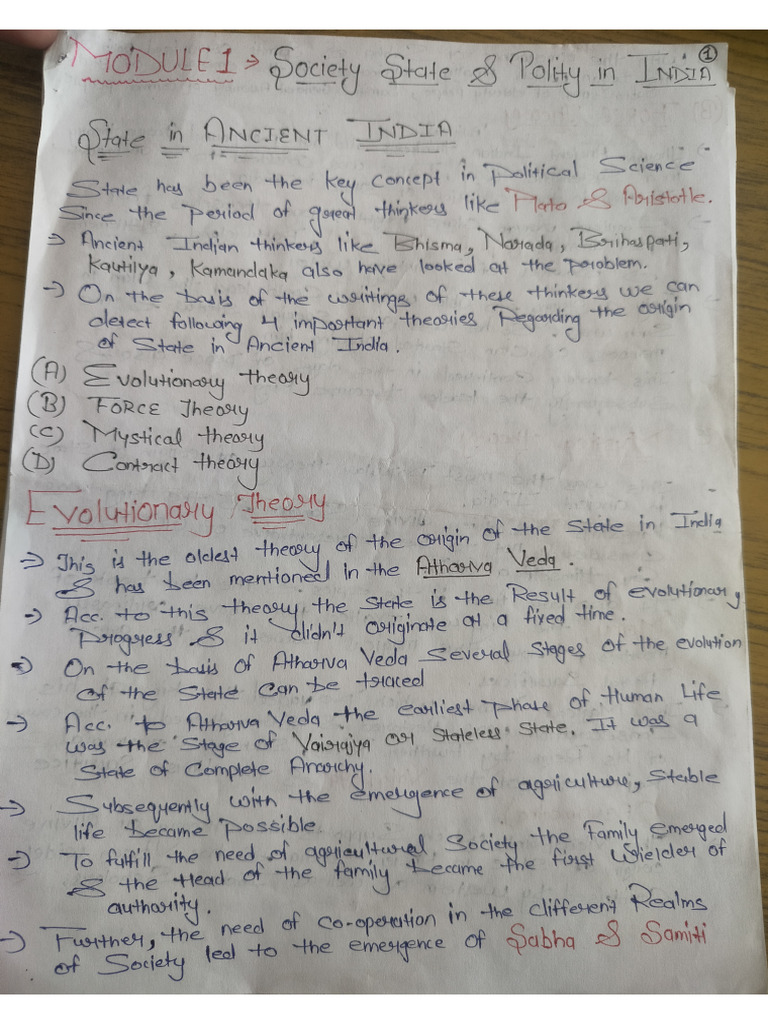 ①
MODULE 1 → Society State & Polity in INDIA
State in ANCIENT INDIA
State has been the key concept in Political Science
Since the period of great thinkers like Plato & Aristotle.
→ Ancient Indian thinkers like Bhisma, Narada, Brihaspati,
Kautilya, Kamandaka also have looked at the problem.
→ On the basis of the writings of these thinkers we can
detect following 4 important theories Regarding the origin
of State in Ancient India.
(A) Evolutionary theory
(B) FORCE Theory
(C) Mystical theory
(D) Contract theory
Evolutionary Theory
→ This is the oldest theory of the origin of the State in India
& has been mentioned in the Atharva Veda.
→ Acc. to this theory, the State is the Result of evolutionary
Progress & it didn't originate at a fixed time.
→ On the basis of Atharva Veda several stages of the evolution
of the State can be traced
→ Acc. to Atharva Veda the earliest phase of Human Life
was the Stage of Vairajya or Stateless State. It was a
State of Complete Anarchy.
→ Subsequently with the emergence of agriculture, Stable
life became possible.
→ To fulfill the need of agricultural Society the Family emerged
& the Head of the family became the first Wielder of
authority.
→ Further, the need of co-operation in the different Realms
of Society led to the emergence of Sabha & Samiti